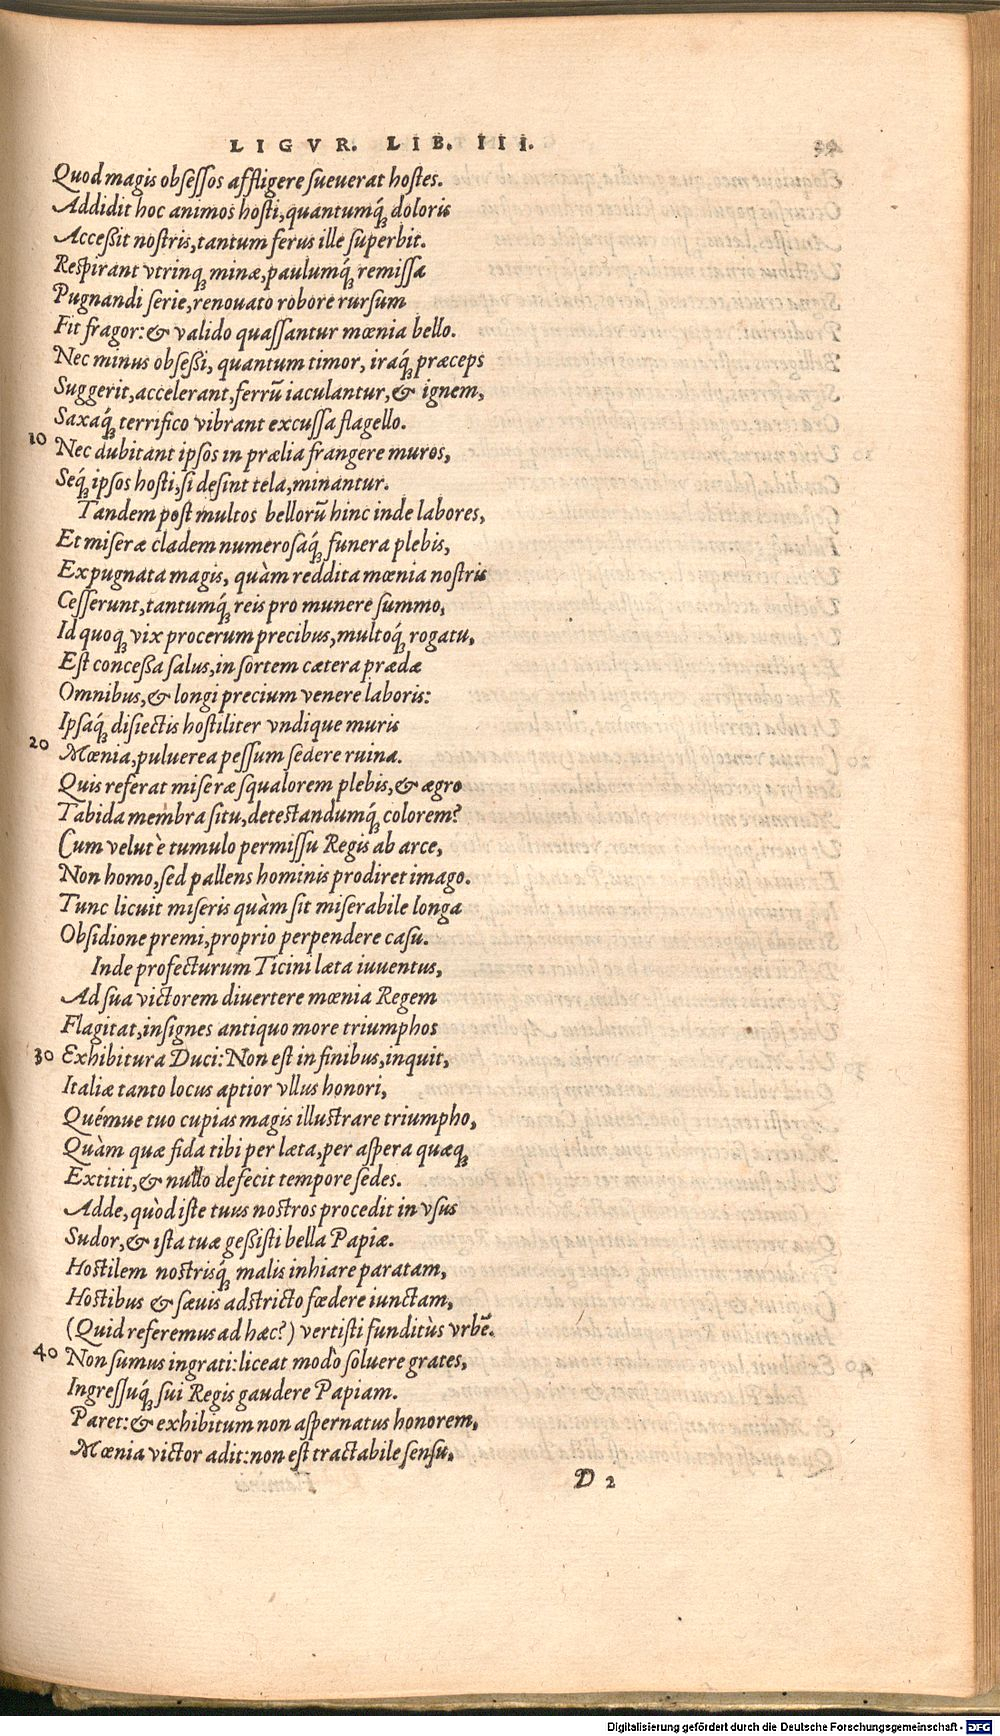 LIGVR. LIB. III. 39
Quod magis obsessos affligere sueuerat hostes.
Addidit hoc animos hosti, quantumq́; doloris
Acceßit nostris, tantum ferus ille superbit.
Respirant vtrinq; minæ, paulumq́; remissa
Pugnandi serie, renouato robore rursum
Fit fragor: & valido quassantur mœnia bello.
Nec minus obseßi, quantum timor, iráq́; præceps
Suggerit, accelerant, ferrũ iaculantur, & ignem,
Saxaq́; terrifico vibrant excussa flagello.
10 Nec dubitant ipsos in prælia frangere muros,
Séq́; ipsos hosti, si desint tela, minantur.
Tandem post multos bellorũ hinc inde labores,
Et miseræ cladem numerosaq́; funera plebis,
Expugnata magis, quàm reddita mœnia nostris
Cesserunt, tantumq́; reis pro munere summo,
Id quoq; vix procerum precibus, multoq́; rogatu,
Est conceßa salus, in sortem cætera prædæ
Omnibus, & longi precium venere laboris:
Ipsaq́; disiectis hostiliter vndique muris
20 Mœnia, puluerea pessum sedere ruina.
Quis referat miseræ squalorem plebis, & ægro
Tabida membra situ, detestandumq́; colorem?
Cum velut è tumulo permissu Regis ab arce,
Non homo, sed pallens hominis prodiret imago.
Tunc licuit miseris quàm sit miserabile longa
Obsidione premi, proprio perpendere casu.
Inde profecturum Ticini læta iuuentus,
Ad sua victorem diuertere mœnia Regem
Flagitat, insignes antiquo more triumphos
30 Exhibitura Duci: Non est in finibus, inquit,
Italiæ tanto locus aptior vllus honori,
Quémue tuo cupias magis illustrare triumpho,
Quàm quæ fida tibi per læta, per aspera quæq;
Extitit, & nullo defecit tempore sedes.
Adde, quòd iste tuus nostros procedit in vsus
Sudor, & ista tuæ geßisti bella Papiæ.
Hostilem nostrisq́; malis inhiare paratam,
Hostibus & sæuis adstricto fœdere iunctam,
(Quid referemus ad hæc?) vertisti funditùs vrbẽ.
40 Non sumus ingrati: liceat modò soluere grates,
Ingressuq́; sui Regis gaudere Papiam.
Paret: & exhibitum non aspernatus honorem,
Mœnia victor adit: non est tractabile sensu,
D 2
Digitalisierung gefördert durch die Deutsche Forschungsgemeinschaft - DFG